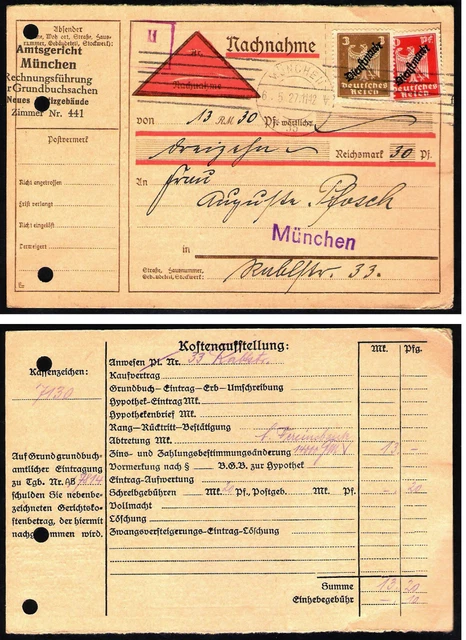 Absender
Amtsgericht
München
Rechnungsführung
Grundbuchsachen
Neues Justizgebäude
Zimmer Nr. 441
Postvermerk
Nicht angetroffen
Frist verlangt
Nicht eingelöst
Verweigert
Nr.
Nachnahme
Nachnahme
MÜNCHEN
5.27.11-12
3 3
Dienstmarke
Deutsches
Reich
Pf.
Dienstmarke
Deutsches
Reich
von 13 RM 30 Pf. wörtlich:
dreizehn Reichsmark 30 Pf.
An Frau
Auguste Posch
in München
Straße, Hausnummer,
Gebäudeteil, Stockwerk:
Kuhlstr. 33.
Kassenzeichen:
7130
Auf Grund grundbuch-
amtlicher Eintragung
zu Tgb. Nr. AB
schulden Sie nebenbe-
zeichneten Gerichtsko-
stenbetrag, der hiermit
nachgenommen wird.
Kostenaufstellung:
Mk. Pfg.
Anwesen Pl. Nr. 33
Kaufvertrag
Grundbuch-Eintrag-Erb-Umschreibung
Hypothek-Eintrag Mk.
Hypothekenbrief Mk.
Rang-Rücktritt-Bestätigung
Abtretung Mk.
Zins- und Zahlungsbestimmungsänderung 13 –
Vormerkung nach § B.G.B. zur Hypothek
Eintrag-Aufwertung
Schreibgebühren Mk. Pf., Postgeb. Mk. Pf.
Vollmacht
Löschung
Zwangsversteigerungs-Eintrag-Löschung
Summe 13
Einhebegebühr